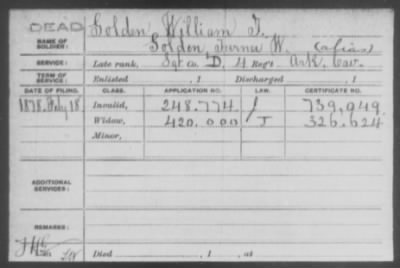 DEAD
NAME OF SOLDIER: Golden William T.
Golden Turner W. (alias)
SERVICE: Late rank, Sgt Co. D, 4 Reg't Ark. Cav.
TERM OF SERVICE: Enlisted , 1 Discharged , 1
DATE OF FILING. CLASS. APPLICATION NO. LAW. CERTIFICATE NO.
1878. July 18 Invalid, 248.774 739,949
Widow, 420.000 J 326,624
Minor,
ADDITIONAL SERVICES:
REMARKS:
Died , 1 , at